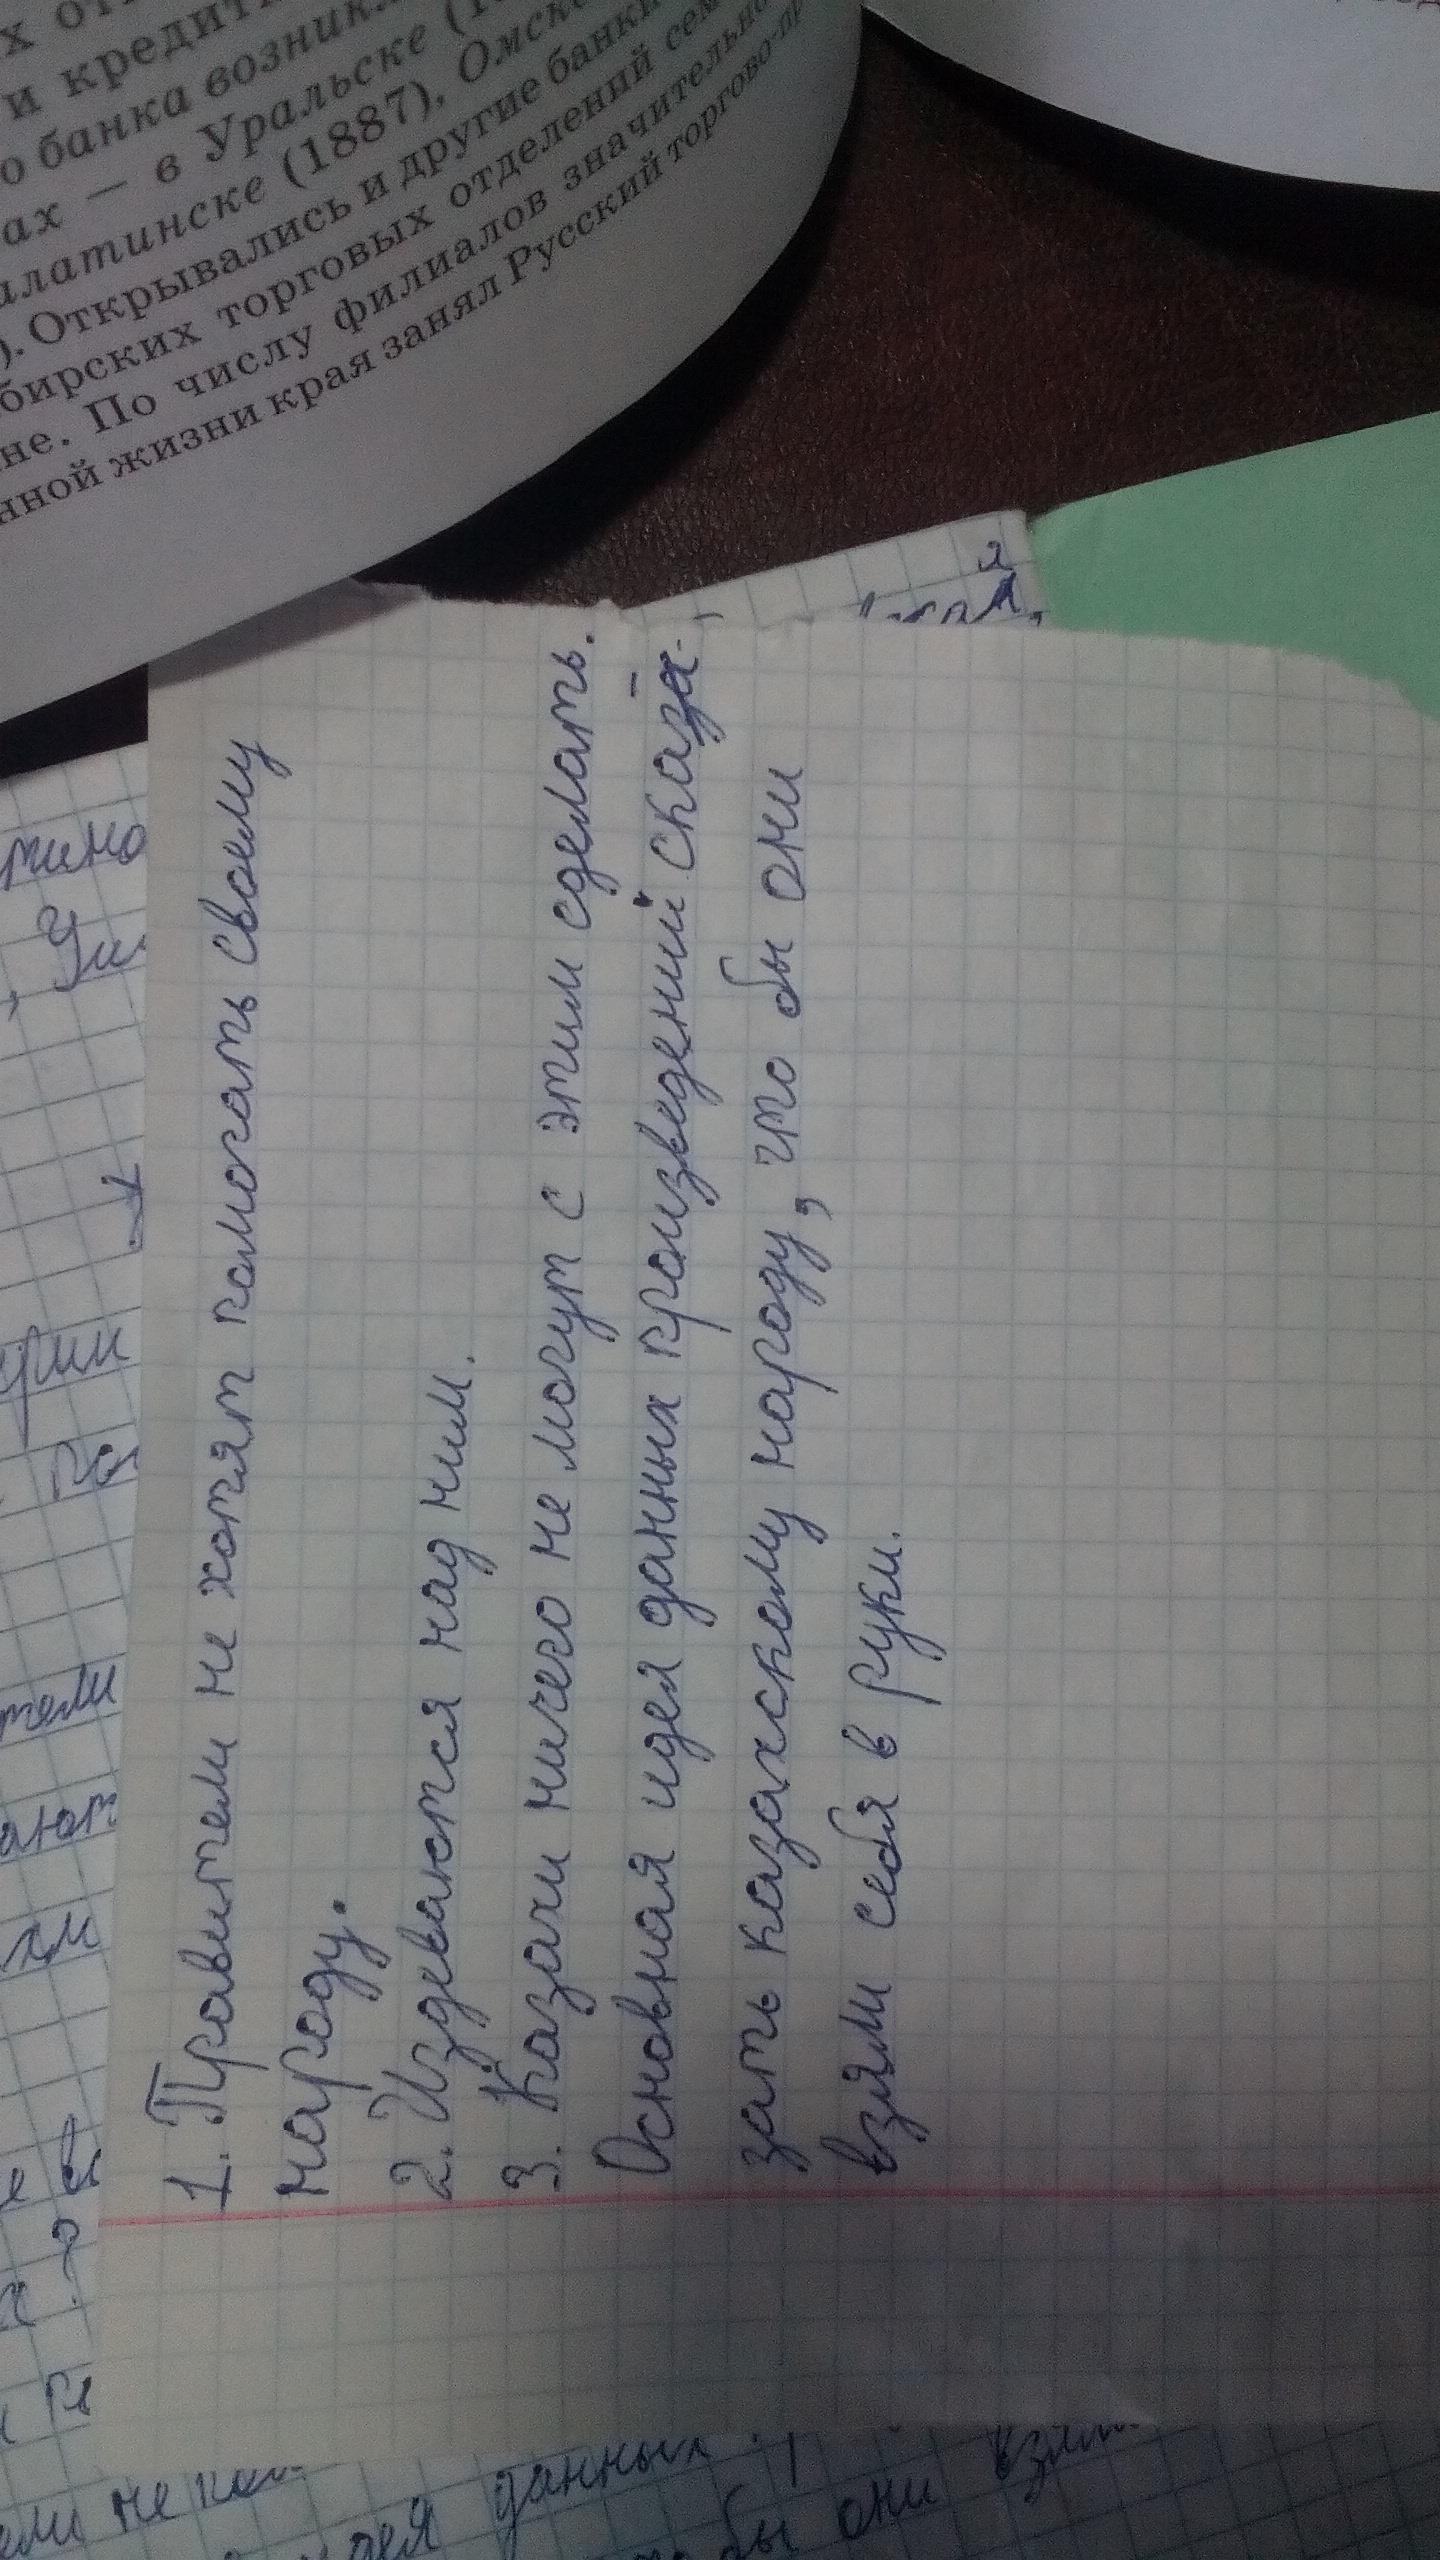 х от
и кредитн
о банка возникл
ах — в Уральске (18
алатинске (1887), Омске
). Открывались и другие банки
бирских торговых отделений сем
не. По числу филиалов значительно
нной жизни края занял Русский торгово-пр
1. Правители не хотят помогать своему
народу.
2. Издеваются над ним.
3. Казахи ничего не могут с этим сделать.
Основная идея данных произведений сказа-
зать казахскому народу, что бы они
взяли себя в руки.
данных
бы они взяли